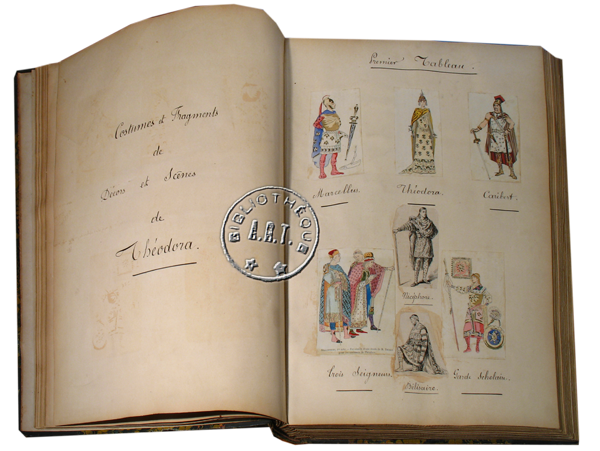 Costumes et Fragments
de
Décors et Scènes
de
Théodora.
Premier Tableau.
Marcellus.
Théodora.
Caribert.
Nicéphore.
Trois Seigneurs.
Bélisaire.
Garde scholaire.
BIBLIOTHÈQUE
A.R.T.